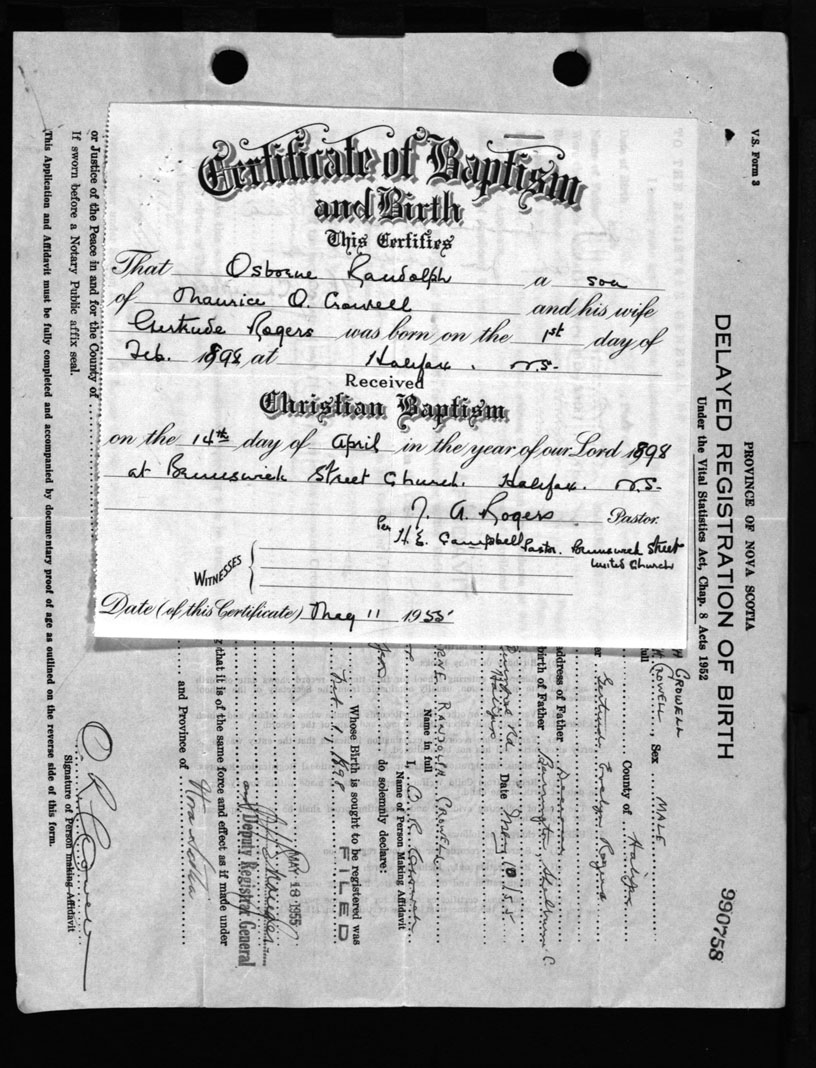 Certificate of Baptism
and Birth
This Certifies
That Osborne Randolph a son
of Maurice O. Crowell and his wife
Gertrude Rogers was born on the 1st day of
Feb. 1898 at Halifax, N.S.
Received
Christian Baptism
on the 14th day of April in the year of our Lord 1898
at Brunswick Street Church. Halifax. N.S.
J. A. Rogers Pastor.
Per H. E. Campbell Pastor. Brunswick Street
United Church
WITNESSES
Date (of this Certificate) May 11 1955
V.S. Form 3
PROVINCE OF NOVA SCOTIA
DELAYED REGISTRATION OF BIRTH
Under the Vital Statistics Act, Chap. 8 Acts 1952
990758
CROWELL
CROWELL, Sex MALE
County of Halifax
Gertrude Evelyn Rogers
address of Father Deceased
birth of Father Barrington, Shelburne C.
Halifax Date May 10/55
RANDOLPH CROWELL
Name in full
I, O. R. Crowell
Name of Person Making Affidavit
do solemnly declare:
Whose Birth is sought to be registered was
Feb. 1, 1898
FILED
MAY 18 1955
Deputy Registrar General
that it is of the same force and effect as if made under
and Province of Nova Scotia
or Justice of the Peace in and for the County of
If sworn before a Notary Public affix seal.
(This Application and Affidavit must be fully completed and accompanied by documentary proof of age as outlined on the reverse side of this form.
O R Crowell
Signature of Person making Affidavit